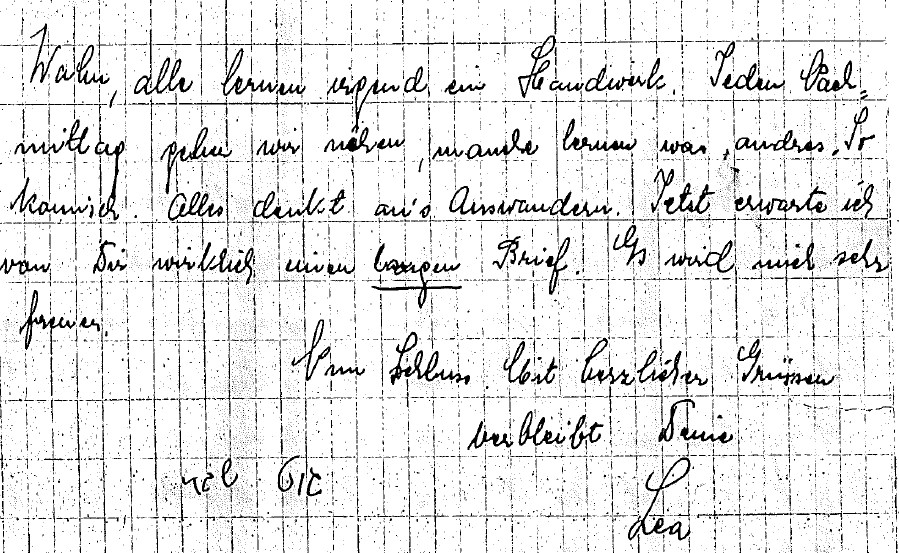 Wahn, alle lernen irgend ein Handwerk. Jeden Nach=
mittag gehen wir nähen, manche lernen was, andres. So
komisch. Alles denkt an's Auswandern. Jetzt erwarte ich
von Dir wirklich einen langen Brief. Es wird mich sehr
freuen.
Nun Schluss. Mit herzlichen Grüssen
verbleibt Deine
Lea